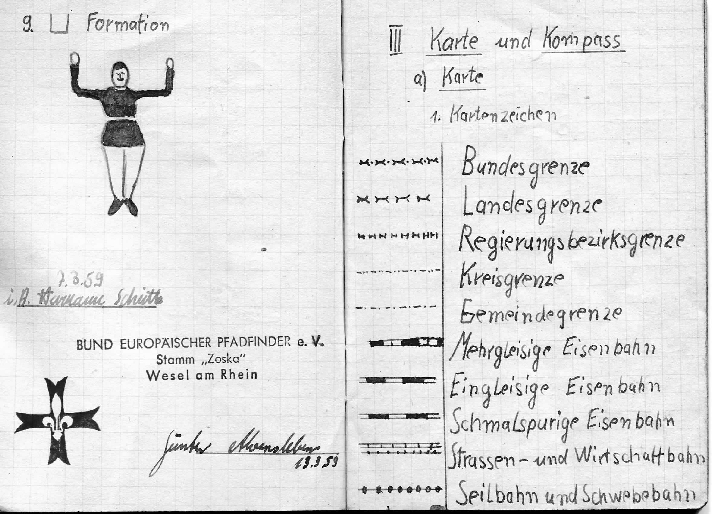 9. Formation
7.3.59
i. A. Marianne Schütte
BUND EUROPÄISCHER PFADFINDER e. V.
Stamm „Zoska"
Wesel am Rhein
Günter Alvensleben
13.3.59
III Karte und Kompass
a) Karte
1. Kartenzeichen
Bundesgrenze
Landesgrenze
Regierungsbezirksgrenze
Kreisgrenze
Gemeindegrenze
Mehrgleisige Eisenbahn
Eingleisige Eisenbahn
Schmalspurige Eisenbahn
Strassen- und Wirtschaftbahn
Seilbahn und Schwebebahn